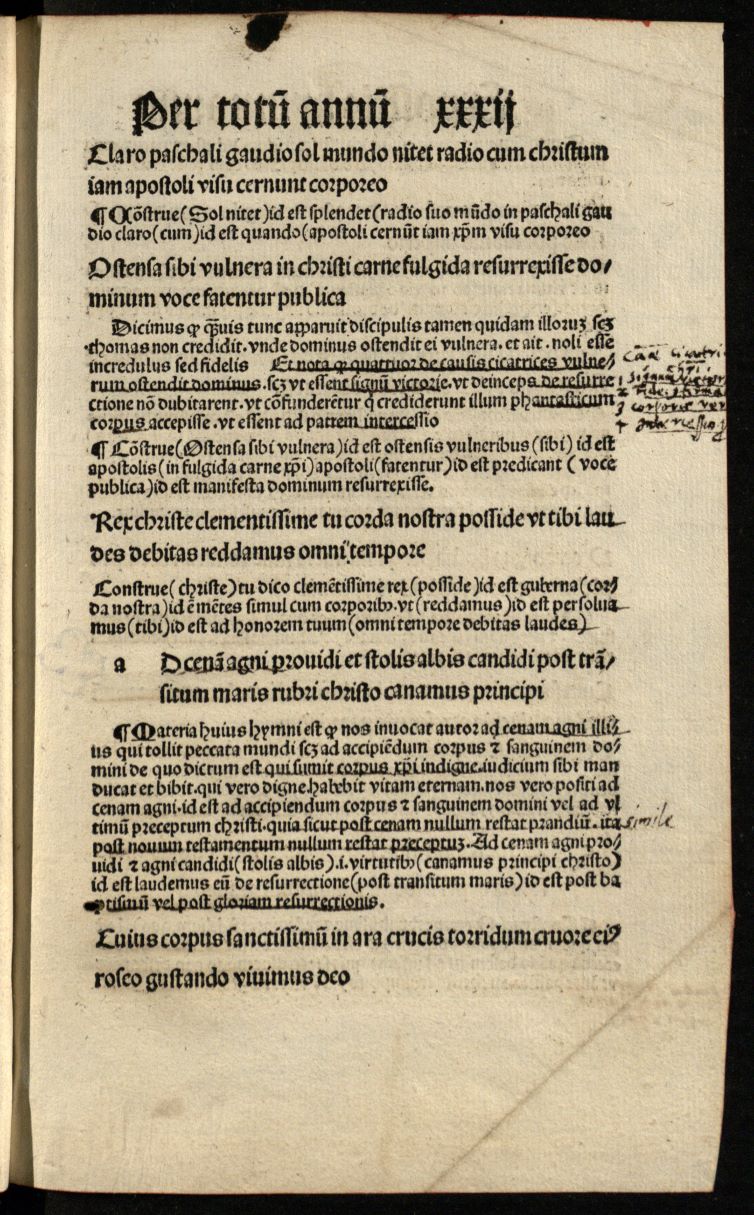 Per totũ annũ xxxij
Claro paschali gaudio sol mundo nitet radio cum christum
iam apostoli visu cernunt corporeo
¶ Cõstrue( Sol nitet)id est splendet(radio suo mũdo in paschali gau
dio claro(cum)id est quando(apostoli cernũt iam xp̃m visu corporeo
Ostensa sibi vulnera in christi carne fulgida resurrexisse do⸗
minum voce fatentur publica
Dicimus ꝙ q̃uis tunc apparuit discipulis tamen quidam illoruꝫ scꝫ
thomas non credidit. vnde dominus ostendit ei vulnera. et ait. noli esse
incredulus sed fidelis Et nota ꝙ quattuor de causis cicatrices vulne⸗
rum ostendit dominus. scꝫ vt essent signũ victorie. vt deinceps de resurre
ctione nõ dubitarent. vt cõfunderẽtur q̇ crediderunt illum phantasticum
corpus accepisse. vt essent ad patrem intercessio
¶ Cõstrue(Ostensa sibi vulnera)id est ostensis vulneribus (sibi) id est
apostolis(in fulgida carne xp̃i)apostoli(fatentur)id est predicant ( voce
publica)id est manifesta dominum resurrexisse.
Rex christe clementissime tu corda nostra posside vt tibi lau
des debitas reddamus omni tempore
Construe( christe)tu dico clemẽtissime rex(posside)id est guberna(cor⸗
da nostra)id ẽ mẽtes simul cum corporibꝰ. vt (reddamus)id est persolua
mus(tibi)id est ad honorem tuum(omni tempore debitas laudes)
a D cenã agni prouidi et stolis albis candidi post trã⸗
situm maris rubri christo canamus principi
¶ Materia huius hymni est ꝙ nos inuocat autor ad cenam agni illi⸗
us qui tollit peccata mundi scꝫ ad accipiẽdum corpus ⁊ sanguinem do⸗
mini de quo dictum est qui sumit corpus xp̃i indigne. iudicium sibi man
ducat et bibit. qui vero digne habebit vitam eternam. nos vero positi ad
cenam agni. id est ad accipiendum corpus ⁊ sanguinem domini vel ad vl
timũ preceptum christi. quia sicut post cenam nullum restat prandiũ. ita
post nouum testamentum nullum restat preceptuꝫ. Ad cenam agni pro⸗
uidi ⁊ agni candidi(stolis albis).i. virtutibꝰ(canamus principi christo)
id est laudemus eũ de resurrectione(post transitum maris)id est post ba
ptismũ vel post gloriam resurrectionis.
Cuius corpus sanctissimũ in ara crucis torridum cruore eiꝰ
roseo gustando viuimus deo
simile